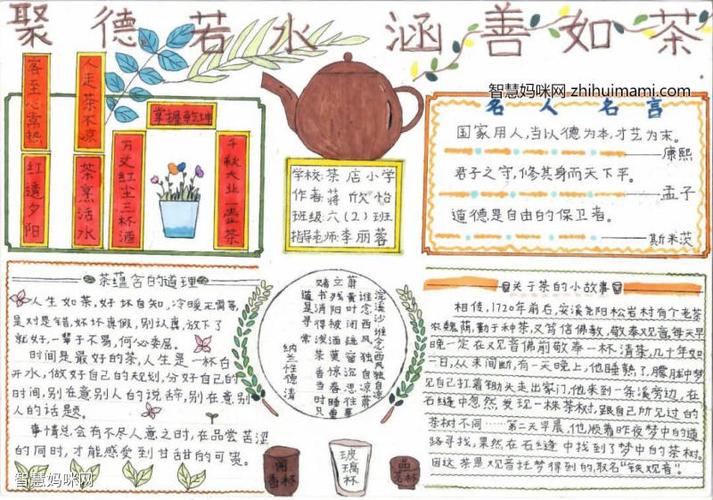 聚德若水 涵善如茶
智慧妈咪网 zhihuimami.com
客至心常热
人走茶不凉
掌握乾坤
万丈红尘三杯酒
千秋大业一壶茶
红遗夕阳
茶烹活水
学校:茶店小学
作者:蒋欣怡
班级:六(2)班
指导老师:李丽蓉
名人名言
国家用人,当以德为本,才艺为末。
——康熙
君子之守,修其身而天下平。
——孟子
道德是自由的保卫者。
——斯米茨
茶蕴含的道理
人生如茶,好坏自知,冷暖无需等,
是对是错,好坏真假,别认真,放下了
就好,一辈子不易,何必委屈。
时间是最好的茶,人生是一杯白
开水,做好自己的规划,分好自己的
时间,别在意别人的说辞,别在意别
人的话题。
事情总会有不尽人意之时,在品尝苦涩
的同时,才能感受到甘甜的可贵。
浣溪沙·谁念西风独自凉
谁念西风独自凉
萧萧黄叶闭疏窗
沉思往事立残阳
被酒莫惊春睡重
赌书消得泼茶香
当时只道是寻常
纳兰性德 清
闻香杯
玻璃杯
品茗杯
关于茶的小故事
相传,1720年前后,安溪尧阳松岩村有个老茶
农魏荫,勤于种茶,又笃信佛教,敬奉观音。每天早
晚一定在观音佛前敬奉一杯清茶,几十年如
一日,从未间断,有一天晚上,他睡熟了,朦胧中梦
见自己扛着锄头走出家门,他来到一条溪旁边,在
石缝中忽然发现一株茶树,跟自己所见过的
茶树不同……第二天早晨,他顺着昨夜梦中的道
路寻找,果然在石缝中找到了梦中的茶树。
因这茶是观音托梦得到的,取名"铁观音"。
智慧妈咪网